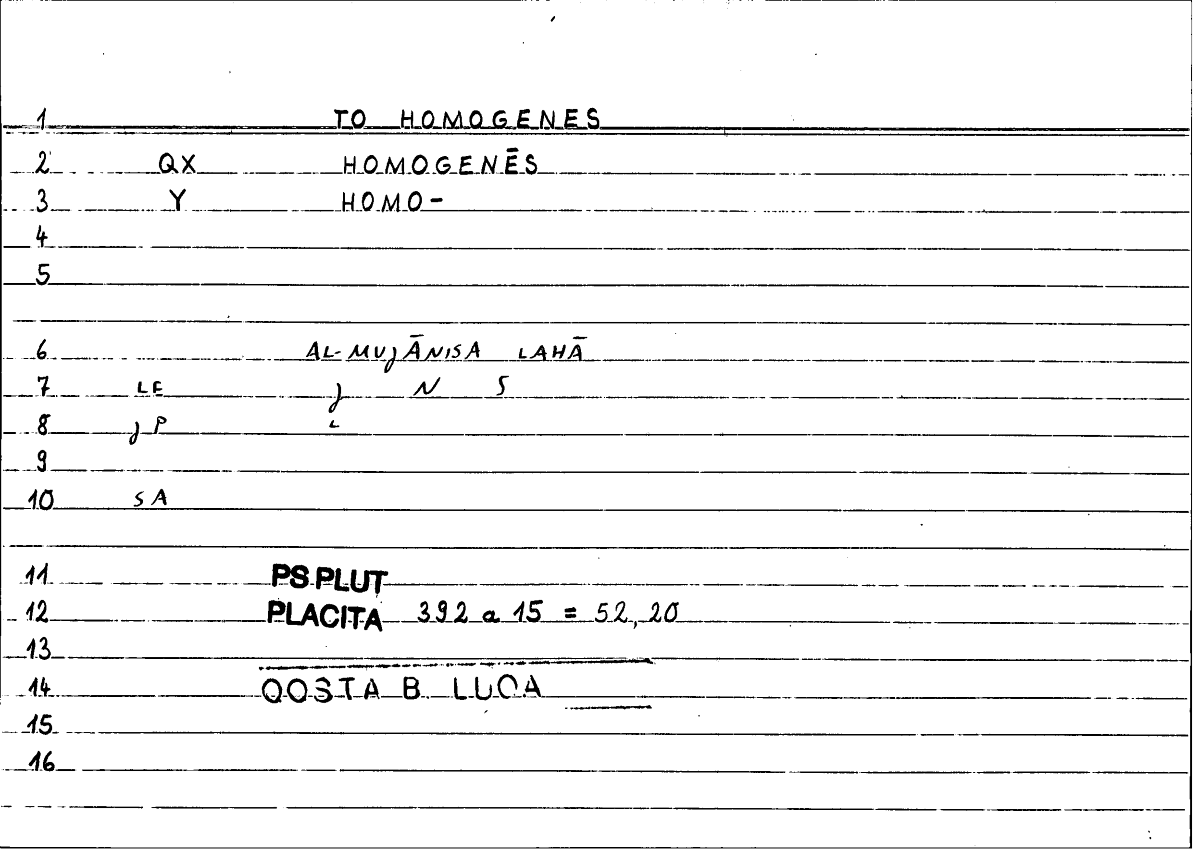 1 TO HOMOGENES
2 QX HOMOGENĒS
3 Y HOMO-
4
5
6 AL-MUJĀNISA LAHĀ
7 LE J N S
8 JP L
9
10 SA
11 PS.PLUT
12 PLACITA 392 a 15 = 52,20
13
14 QOSTA B. LUQA
15
16